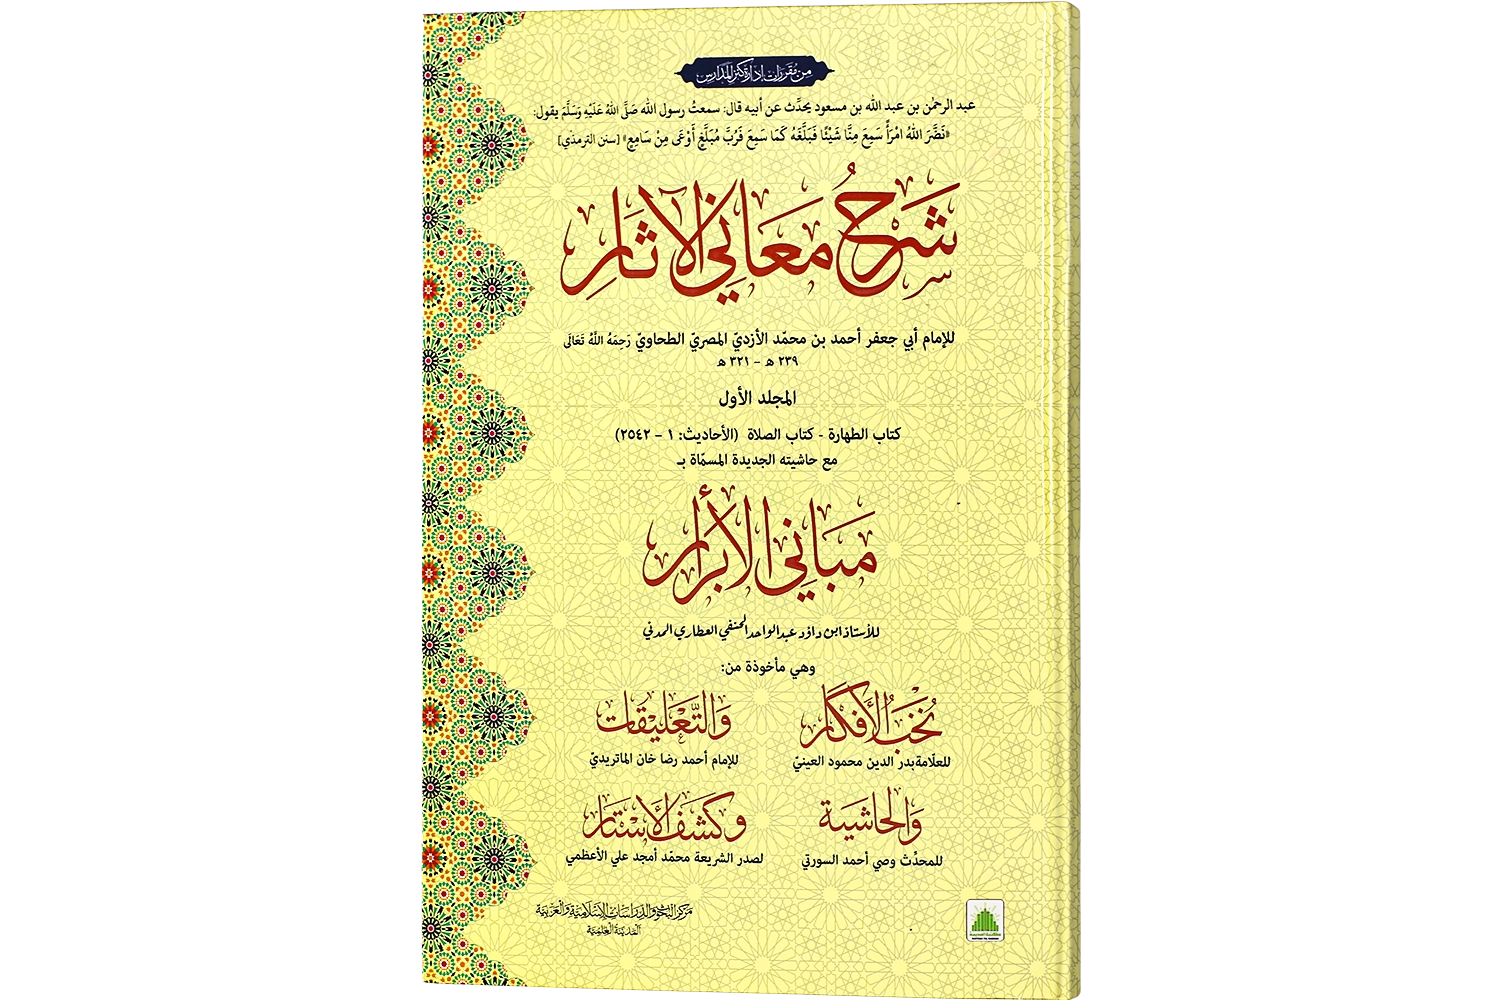 من مقررات إدارة كنز المدارس
عبد الرحمٰن بن عبد الله بن مسعود يحدِّث عن أبيه قال: سمعتُ رسول الله صَلَّى اللهُ عَلَيْهِ وَسَلَّمَ يقول:
«نَضَّرَ اللهُ امْرَأً سَمِعَ مِنَّا شَيْئًا فَبَلَّغَهُ كَمَا سَمِعَ فَرُبَّ مُبَلَّغٍ أَوْعَى مِنْ سَامِعٍ» [سنن الترمذي]
شَرْحُ مَعَانِي الآثَارِ
للإمام أبي جعفر أحمد بن محمّد الأزديّ المصريّ الطحاويّ رَحِمَهُ اللَّهُ تَعَالَى
٢٣٩ هـ – ٣٢١ هـ
المجلد الأول
كتاب الطهارة - كتاب الصلاة (الأحاديث: ١ – ٢٥٤٢)
مع حاشيته الجديدة المسمّاة بـ
مباني الأبرار
للأستاذ ابن داؤد عبد الواحد الحنفي العطاري المدني
وهي مأخوذة من:
نُخَبُ الأَفْكَار وَالتَّعْلِيْقَات
للعلّامة بدر الدين محمود العينيّ للإمام أحمد رضا خان الماتريديّ
وَالحَاشِيَة وكَشْف الأَسْتَار
للمحدِّث وصي أحمد السورتي لصدر الشريعة محمّد أمجد علي الأعظمي
مركز البحوث والدراسات الإسلامية والعربية
المدينة العلمية